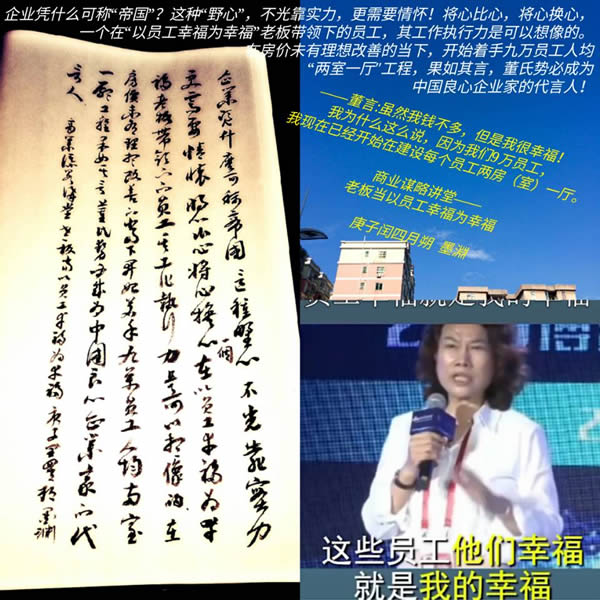 企业凭什么可称“帝国”？这种“野心”，不光靠实力，更需要情怀！将心比心，将心换心，
一个在“以员工幸福为幸福”老板带领下的员工，其工作执行力是可以想像的。
在房价未有理想改善的当下，开始着手九万员工人均
“两室一厅”工程，果如其言，董氏势必成为
中国良心企业家的代言人！
——董言:虽然我钱不多，但是我很幸福！
我为什么这么说，因为我们9万员工，
我现在已经开始在建设每个员工两房（室）一厅。
商业谋略讲堂——
老板当以员工幸福为幸福
庚子闰四月朔 墨渊
企業凭什麼可称帝国这种野心不光靠实力
更需要情怀将心比心将心换心一個在以员工幸福为幸
福老板带领下的员工其工作执行力是可以想像的在
房價未有理想改善的当下开始着手九万员工人均两室
一厅工程果如其言董氏势必成为中国良心企業家的代
言人 商業谋略讲堂 老板当以员工幸福为幸福 庚子 墨渊
员工幸福就是我的幸福
这些员工他们幸福
就是我的幸福